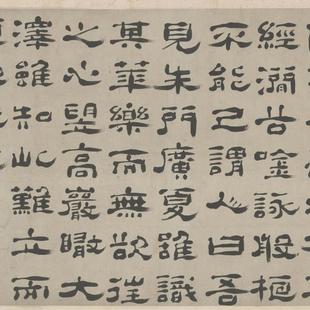 經澗谷唫詠般桓
不能已謂人曰吾
見朱門廣夏雖識
其華樂而無欲往
之心望高巖瞰大
澤雖知此難立而